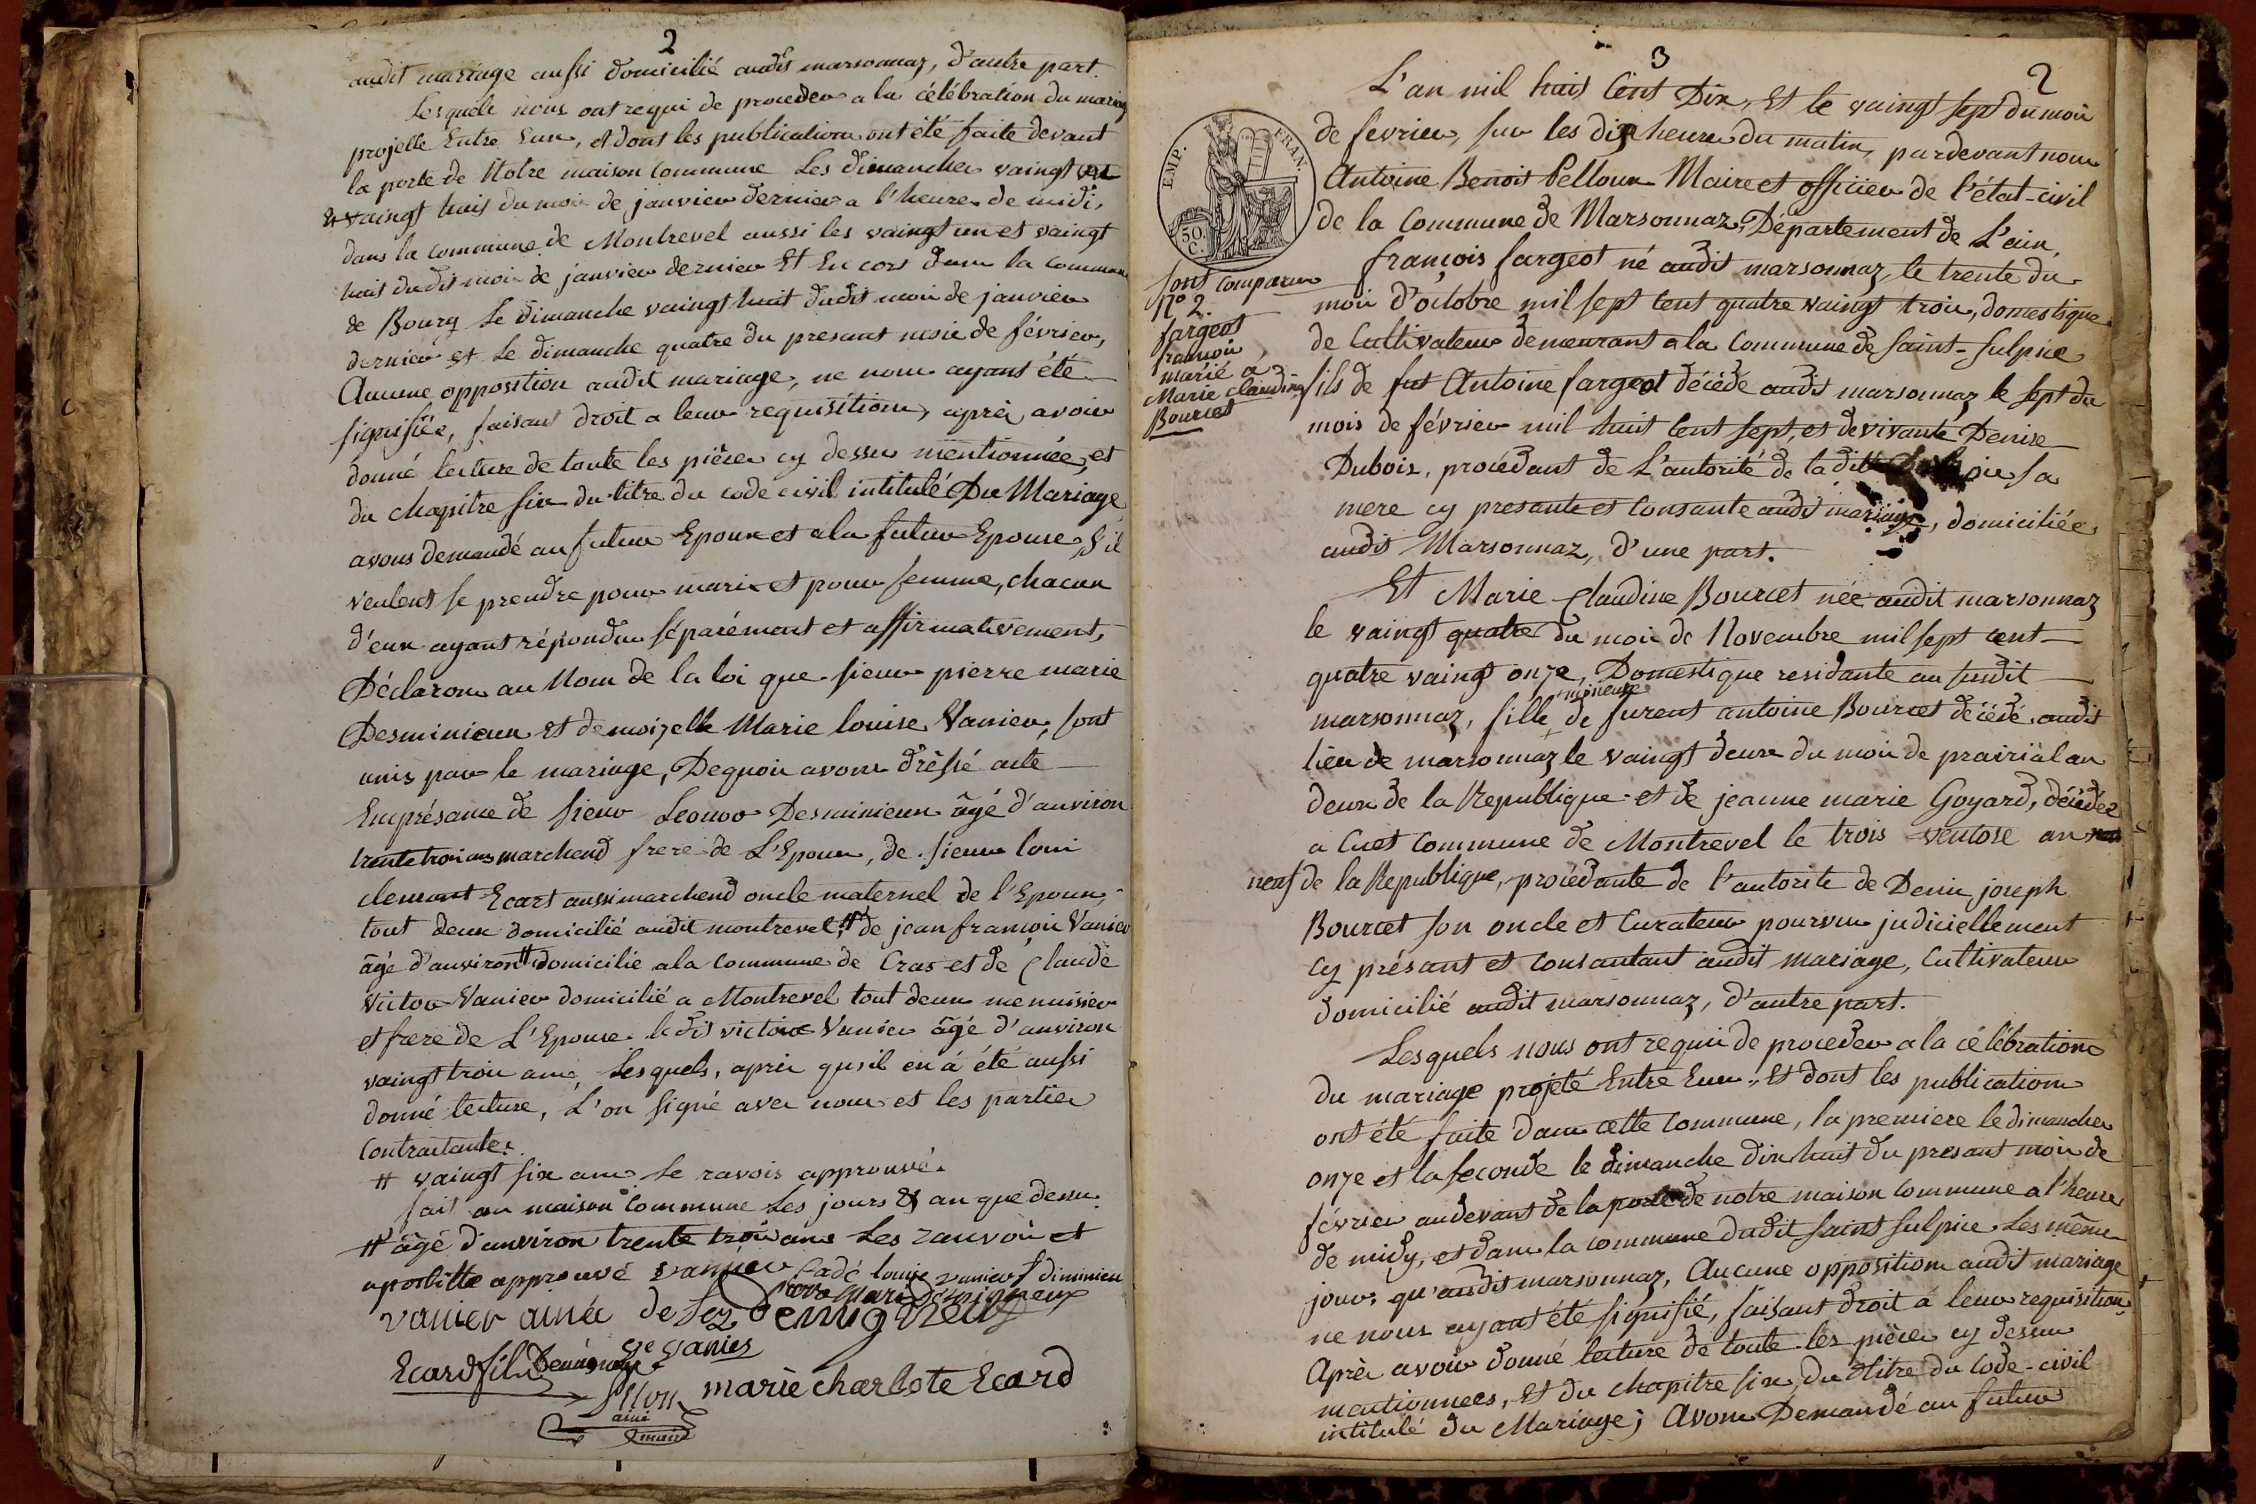 2
audit mariage aussi domicilié audit marsonnaz, d'autre part.
Lesquels nous ont requi de proceder a la célébration du mariage
projetté Entre Eux, et dont les publications ont été faite devant
la porte de Notre maison commune Les dimanches vaingt un
et vaingt huit du mois de janvier dernier a l'heure de midi,
dans la commune de Montrevel aussi les vaingt un et vaingt
huit dudit mois de janvier dernier Et En cors dans la commune
de Bourg Le dimanche vaingt huit dudit mois de janvier
dernier et Le dimanche quatre du presant mois de février,
Aucune opposition audit mariage, ne nous ayant été
signifiée, faisant droit a leur requisitions, après avoir
donné lecture de toute les pièces cy dessus mentionnée, et
du chapitre six du titre du code civil intitulé Du Mariage
avons demandé au futur Epoux et a la futur Epouse, s'il
veulent se prendre pour mari et pour femme, chacun
d'eux ayant répondu séparément et affirmativement,
Déclarons au Nom de la loi que sieur pierre marie
Desminieux et demoizelle Marie louise Vanier, sont
unis par le mariage, Dequoi avons dréssé acte
En présance de sieur Leonor Desminieux âgé d'anviron
trente trois ans marchend frere de L'Epoux, de sieur loui
clemant Ecart aussi marchend oncle maternel de l'Epoux,
tout deux domicilié audit montrevel, # de jean françois Vanier
âgé d'anviron # domicilié a la commune de Cras et de Claude
Victor Vanier domicilié a Montrevel tout deux menuisier
et frere de L'Epouse ledit victor Vanier âgé d'anviron
vaingt trois ans, Lesquels, après qu'il en á été aussi
donné lecture, L'on signé avec nous et les parties
Contractantes.
# vaingt six ans le ravois approuvé.
fait en maison commune Les jours & an que dessus.
# âgé d'anviron trente trois ans Les zauvois et
apostille approuvé vannier Cadé louise vanier f diminieu
vanier ainée
Ecard fils
Ve vanier
marie charlote Ecard
3
2
EMP. FRAN.
50 C.
L'an mil huit Cent Dix, Et le vaingt sept du moi
de fevrier, sur les dix heures du matin, pardevant nous
Antoine Benoit Pelloux Maire et officier de l'état-civil
de la Commune de Marsonnaz, Département de L'ain
sont comparu
françois fargeot né audit marsonnaz le trente du
mois d'octobre mil sept cent quatre vaingt trois, domestique
de Cultivateur demeurant a la Commune de Saint-Sulpice
fils de fut Antoine fargeot décédé audit marsonnaz le sept du
mois de février mil huit Cent sept, et de vivante Denise
Dubois, procédant de L'autorité de ladite Dubois sa
mere cy presante et Consante audit mariage, domiciliée
audit Marsonnaz, d'une part.
N° 2.
fargeot
francois
marié a
Marie Claudine
Bourcet
Et Marie Claudine Bourcet née audit marsonnaz
le vaingt quatre du moi de Novembre mil sept cent
quatre vaingt onze, Domestique residante au susdit
marsonnaz, fille mineure de furent antoine Bourcet décédé audit
lieu de marsonnaz le vaingt deux du moi de prairial an
deux de la Republique et de jeanne marie Goyard, décédée
a Cuet Commune de Montrevel le trois ventose an
neuf de la Republique, procédante de l'autorite de Denis joseph
Bourcet son oncle et Curateur pourvu judiciellement
Cy présant et consantant audit mariage, Cultivateur
domicilié audit marsonnaz, d'autre part.
Lesquels nous ont requi de proceder a la célébration
du mariage projeté Entre Eux, Et dont les publications
ont été faite dans cette Commune, la premiere le dimanche
onze et la seconde le dimanche dix huit du presant moi de
février au devant de la porte de notre maison commune a l'heure
de midy, et dans la commune dudit saint sulpice Les même
jour, qu'audit marsonnaz, Aucune opposition audit mariage
ne nous ayant été signifié, faisant droit á leur requisition.
Après avoir donné lecture de toute les pièces cy dessus
mentionnees, Et du chapitre six, du titre du Code-civil
intitulé du Mariage; Avons Demandé au futur